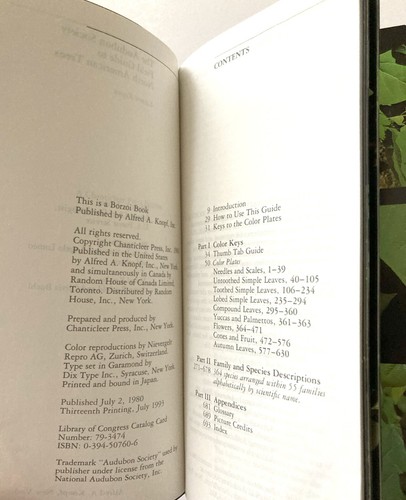 This is a Borzoi Book
Published by Alfred A. Knopf, Inc.
All rights reserved.
Copyright Chanticleer Press, Inc.
Published in the United States
by Alfred A. Knopf, Inc., New York
and simultaneously in Canada by
Random House of Canada Limited,
Toronto. Distributed by Random
House, Inc., New York.
Prepared and produced by
Chanticleer Press, Inc., New York.
Color reproductions by Nievergelt
Repro AG, Zurich, Switzerland.
Type set in Garamond by
Dix Type Inc., Syracuse, New York.
Printed and bound in Japan.
Published July 2, 1980
Thirteenth Printing, July 1993
Library of Congress Catalog Card
Number: 79-3474
ISBN: 0-394-50760-6
Trademark "Audubon Society" used by
publisher under license from the
National Audubon Society, Inc.
CONTENTS
9 Introduction
29 How to Use This Guide
31 Keys to the Color Plates
Part I Color Keys
34 Thumb Tab Guide
50 Color Plates
Needles and Scales, 1–39
Untoothed Simple Leaves, 40–105
Toothed Simple Leaves, 106–234
Lobed Simple Leaves, 235–294
Compound Leaves, 295–360
Yuccas and Palmettos, 361–363
Flowers, 364–471
Cones and Fruit, 472–576
Autumn Leaves, 577–630
Part II Family and Species Descriptions
275–678 364 species arranged within 55 families
alphabetically by scientific name.
Part III Appendices
681 Glossary
689 Picture Credits
693 Index